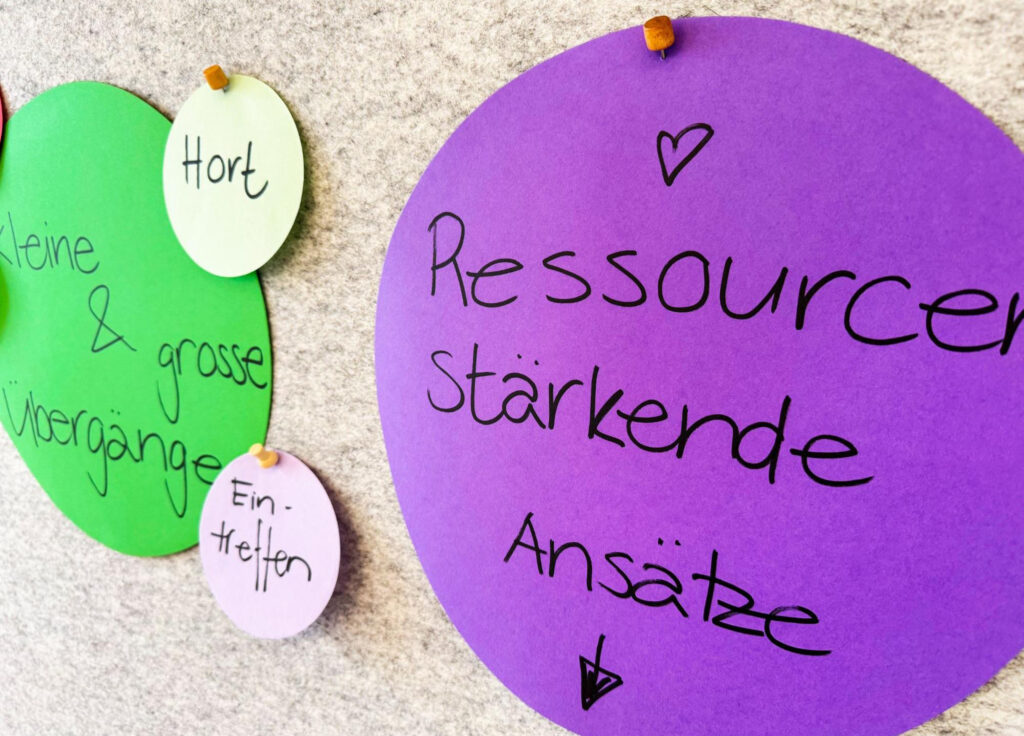 Hort
kleine
&
grosse
Übergänge
Ein-
treffen
Ressourcen
stärkende
Ansätze